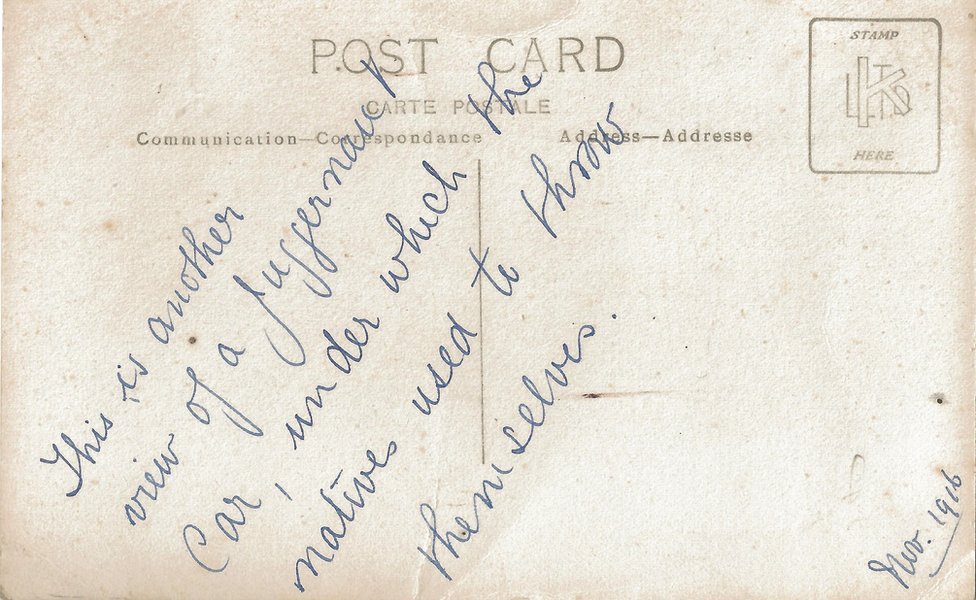 POST CARD
CARTE POSTALE
Communication—Correspondance
Address—Addresse
STAMP
HERE
This is another
view of a Juggernaut
Car, under which the
natives used to throw
themselves.
Nov. 1916